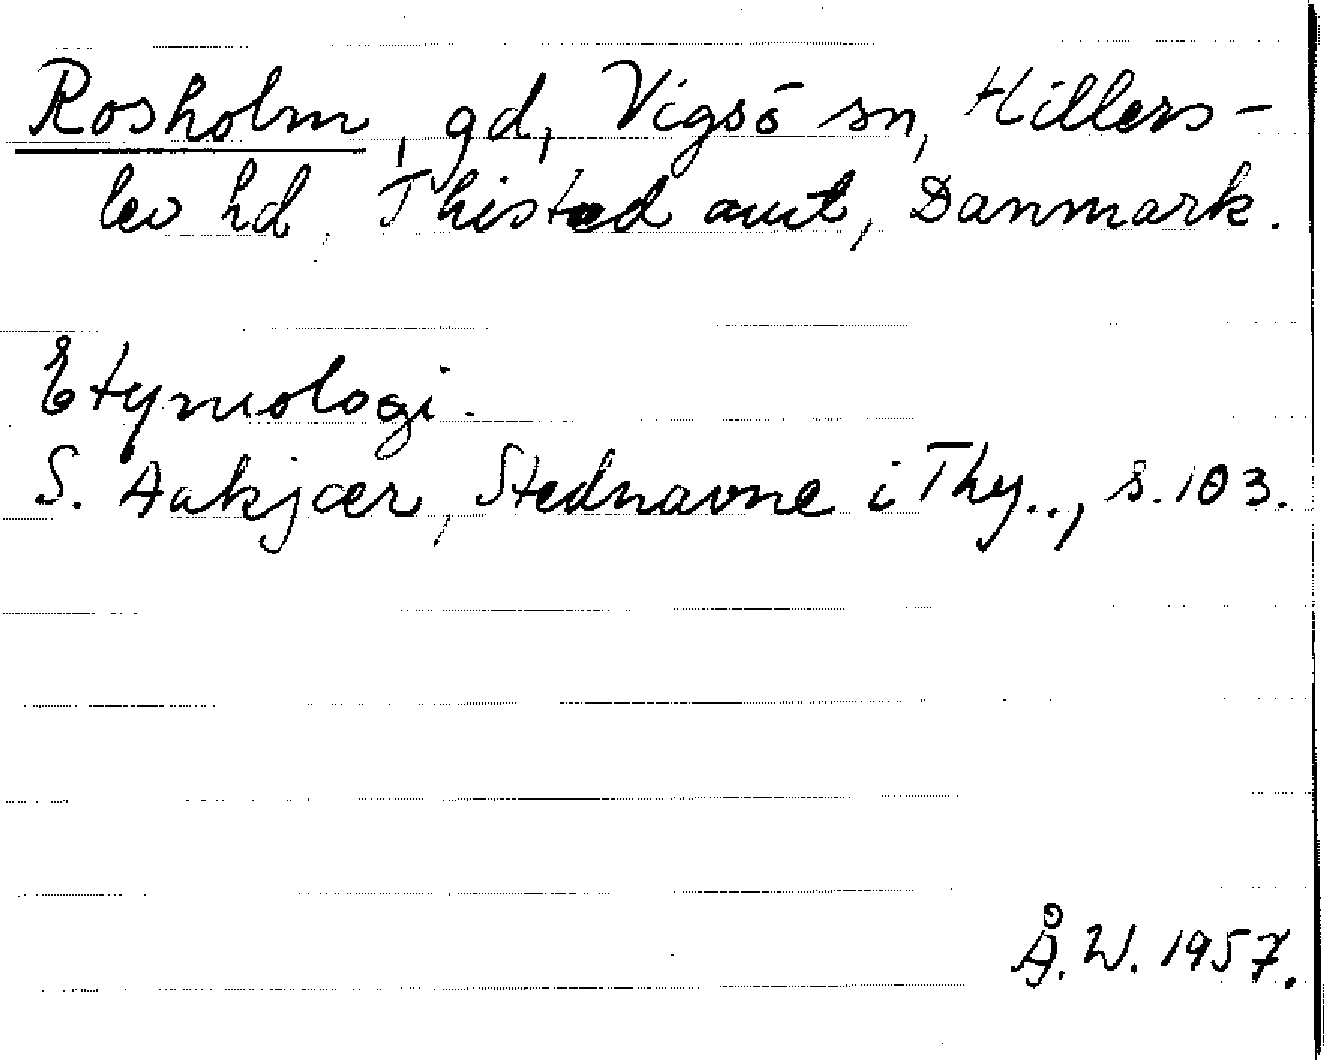 Rosholm, gd, Vigsö sn, Hillers-
lev hd, Thisted amt, Danmark.
Etymologi.
S. Aakjær, Stednavne i Thy.., s. 103.
Å. W. 1957.